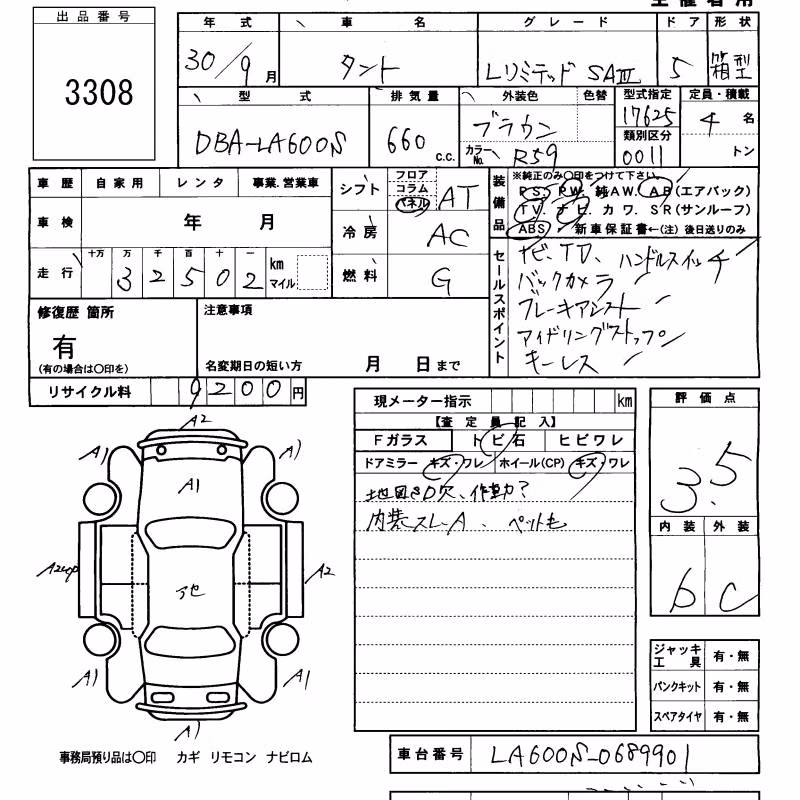 出品番号
3308
年式 車名 グレード ドア 形状
30/9月 タント Lリミテッド SAⅢ 5 箱型
型式 排気量 外装色 色替 型式指定 定員・積載
DBA-LA600S 660 c.c. ブラウン 17625 4名
カラーNo. R59 類別区分 0011 トン
車歴 自家用 レンタ 事業.営業車
シフト フロア コラム パネル AT
装備品 ※純正のみ〇印をつけて下さい。
PS. PW. 純AW. AB(エアバック)
TV. ナビ. カワ. SR(サンルーフ)
ABS. 新車保証書←(注)後日送りのみ
車検 年 月
冷房 AC
走行 十万 万 千 百 十 一
32502 km マイル
燃料 G
セールスポイント ナビ、TV、ハンドルスイッチ
バックカメラ
ブレーキアシスト
アイドリングストップ
キーレス
修復歴 箇所
有
(有の場合は〇印を)
注意事項
名変期日の短い方 月 日まで
リサイクル料 9200円
現メーター指示 km
【査定員記入】
Fガラス トビ石 ヒビワレ
ドアミラー キズ・ワレ ホイール(CP) キズ・ワレ
地図SD欠、作動?
内装スレ-A、ペット毛
評価点
3.5
内装 外装
b C
A2
A1 A1
A1
A2 A2
アセ
A1 A1
A1
ジャッキ工具 有・無
パンクキット 有・無
スペアタイヤ 有・無
事務局預り品は〇印 カギ リモコン ナビロム
車台番号 LA600S-0689901